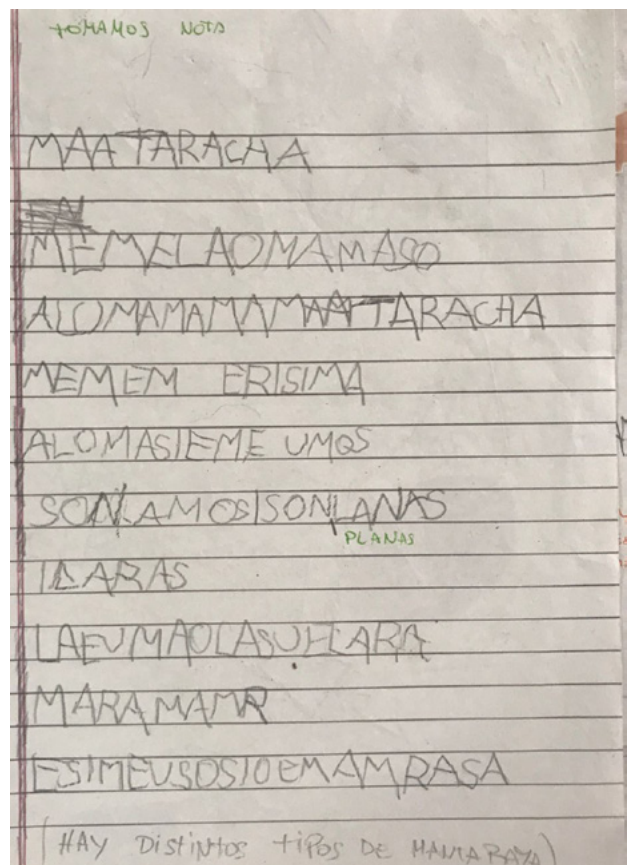 TOMAMOS NOTA
MAATARACHA
MEMELAOMAMASO
ALOMAMAMAMAATARACHA
MEMEM ERISIMA
ALOMASIEME UMOS
SONLAMOSISONLANAS
PLANAS
ILARAS
MARAMAMR
ESIMEUSOSIOEMAMRASA
(HAY DISTINTOS TIPOS DE MANTARAYA)